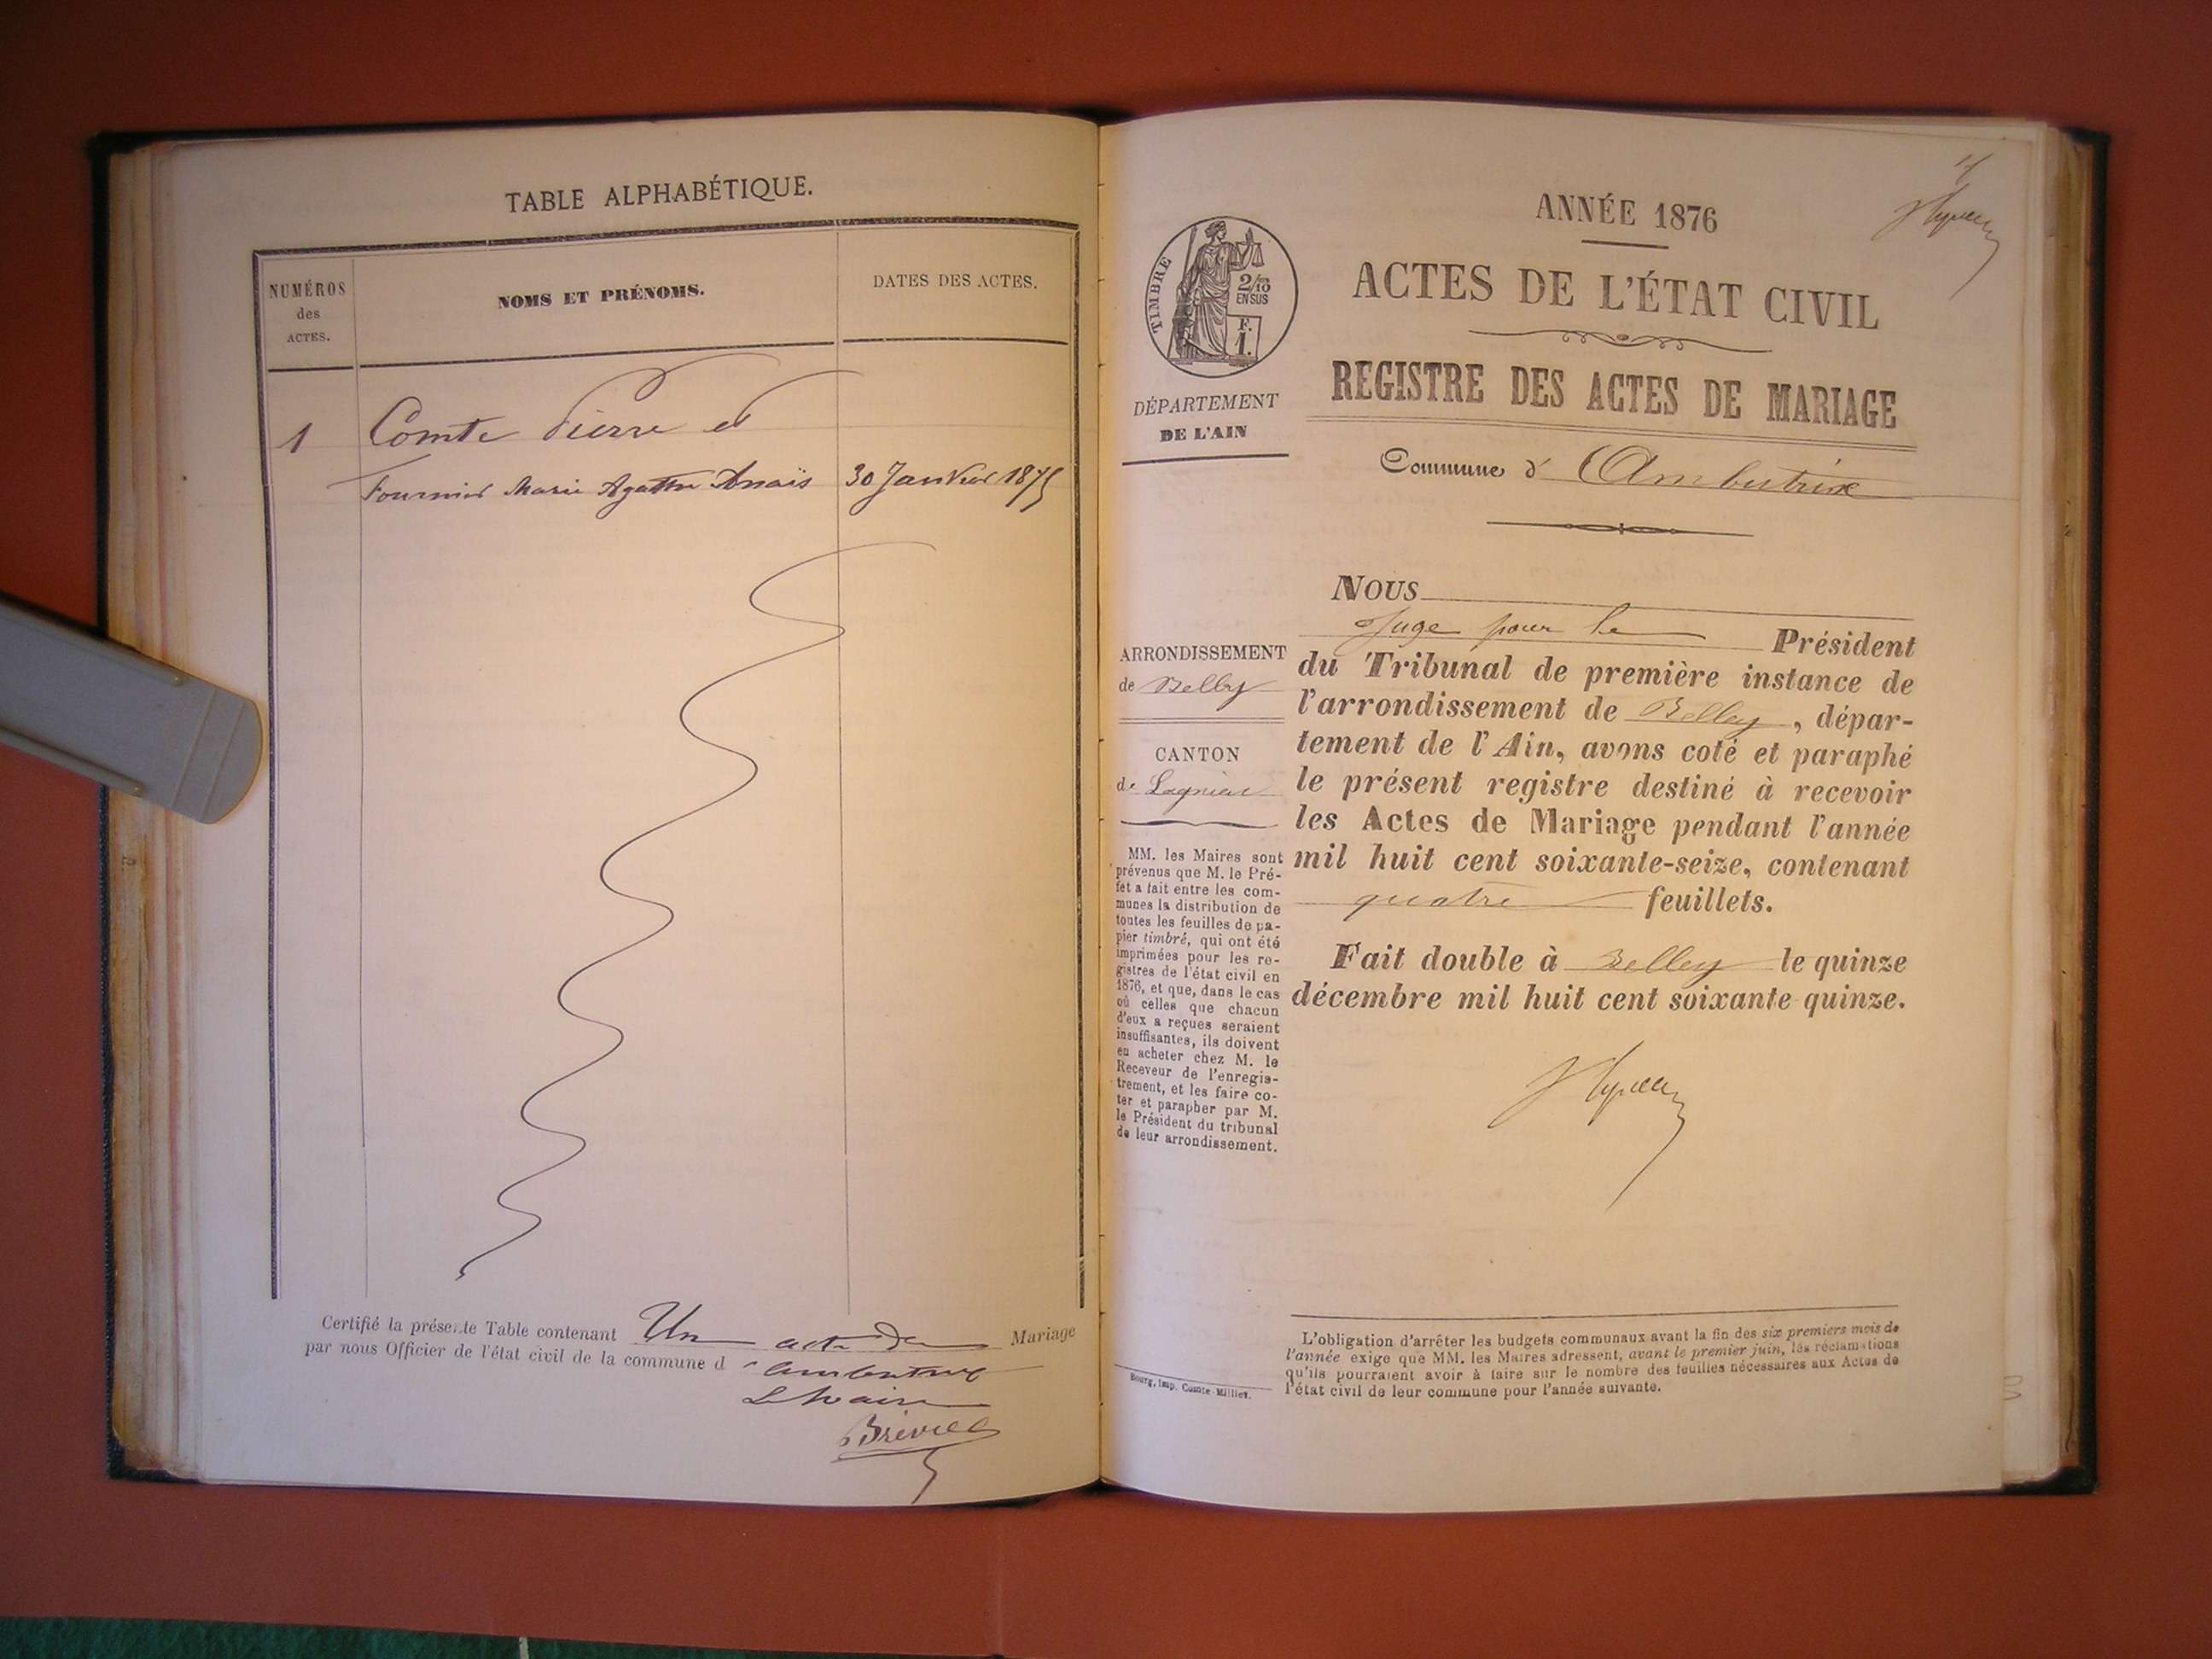 TABLE ALPHABÉTIQUE.
NUMÉROS
des
ACTES.
NOMS ET PRÉNOMS.
DATES DES ACTES.
1
Comte Pierre et
Fournier Marie Agathe Anaïs
30 Janvier 1875
Certifié la présente Table contenant Un acte de Mariage
par nous Officier de l'état civil de la commune d'ambutrix
Le Maire
ANNÉE 1876
TIMBRE
2/10
EN SUS
F.
1.
ACTES DE L'ÉTAT CIVIL
REGISTRE DES ACTES DE MARIAGE
Commune d' Ambutrix
DÉPARTEMENT
DE L'AIN
ARRONDISSEMENT
de Belley
CANTON
de Lagnieu
MM. les Maires sont
prévenus que M. le Pré-
fet a fait entre les com-
munes la distribution de
toutes les feuilles de pa-
pier timbré, qui ont été
imprimées pour les re-
gistres de l'état civil en
1876, et que, dans le cas
où celles que chacun
d'eux a reçues seraient
insuffisantes, ils doivent
en acheter chez M. le
Receveur de l'enregis-
trement, et les faire co-
ter et parapher par M.
le Président du tribunal
de leur arrondissement.
Bourg, imp. Comte-Milliet.
NOUS
Juge pour le Président
du Tribunal de première instance de
l'arrondissement de Belley, dépar-
tement de l'Ain, avons coté et paraphé
le présent registre destiné à recevoir
les Actes de Mariage pendant l'année
mil huit cent soixante-seize, contenant
quatre feuillets.
Fait double à Belley le quinze
décembre mil huit cent soixante quinze.
L'obligation d'arrêter les budgets communaux avant la fin des six premiers mois de
l'année exige que MM. les Maires adressent, avant le premier juin, les réclamations
qu'ils pourraient avoir à faire sur le nombre des feuilles nécessaires aux Actes de
l'état civil de leur commune pour l'année suivante.